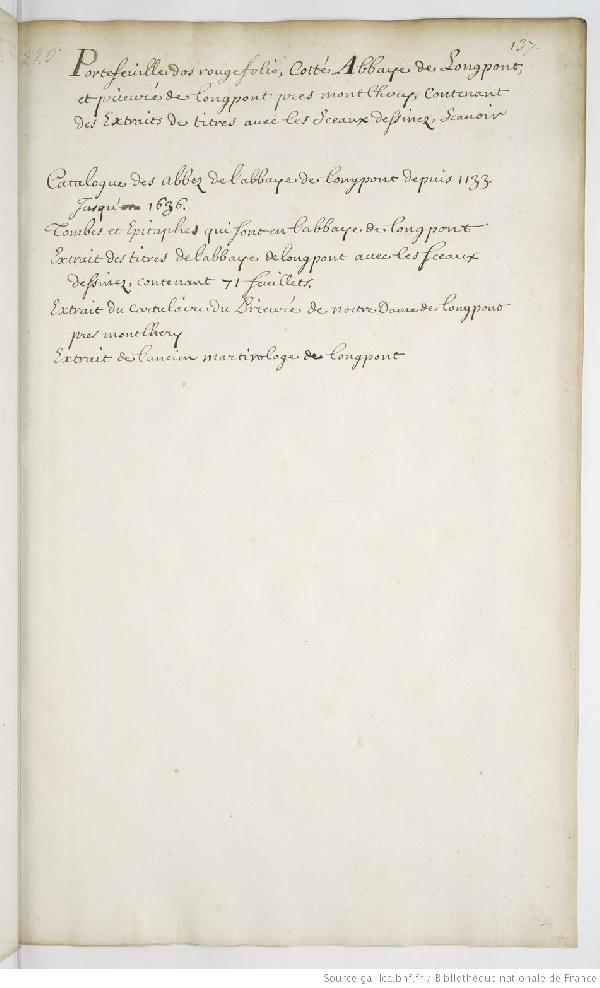 220
137.
Portefeuille dos rouge folio, Cotté Abbaye de Longpont,
et prieuré de longpont pres montlhery, Contenant
des Extraits de titres avec les Sceaux dessinez, Scavoir
Catalogue des abbez de l'abbaye de longpont depuis 1133.
Jusqu'en 1636.
Tombes et Epitaphes qui sont en l'abbaye de longpont
Extrait des titres de l'abbaye de longpont avec les sceaux
dessinez, contenant 71 feuillets.
Extrait du cartulaire du Prieuré de nostre Dame de longpont
pres montlhery
Extrait de l'ancien martirologe de longpont
Source gallica.bnf.fr / Bibliothèque nationale de France